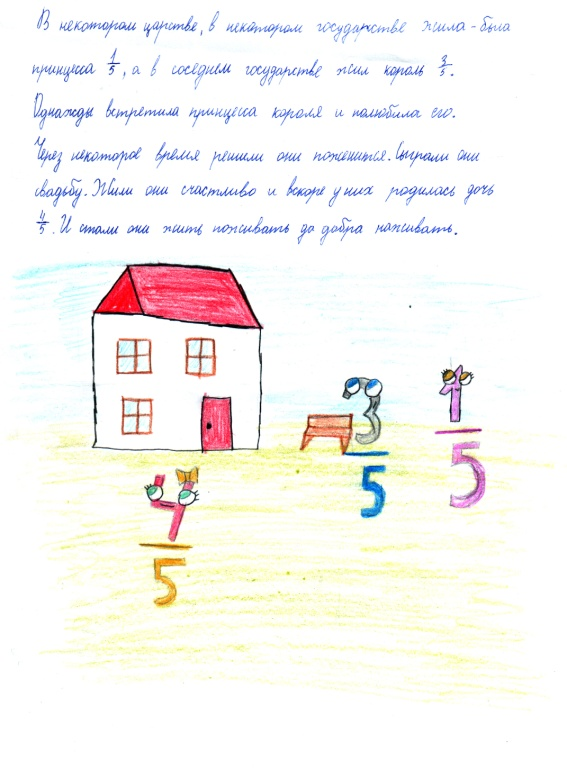 В некотором царстве, в некотором государстве жила-была
принцесса 1/5, а в соседнем государстве жил король 3/5.
Однажды встретила принцесса короля и полюбила его.
Через некоторое время решили они поженится. Сыграли они
свадьбу. Жили они счастливо и вскоре у них родилась дочь
4/5. И стали они жить поживать да добра наживать.
3/5
1/5
4/5